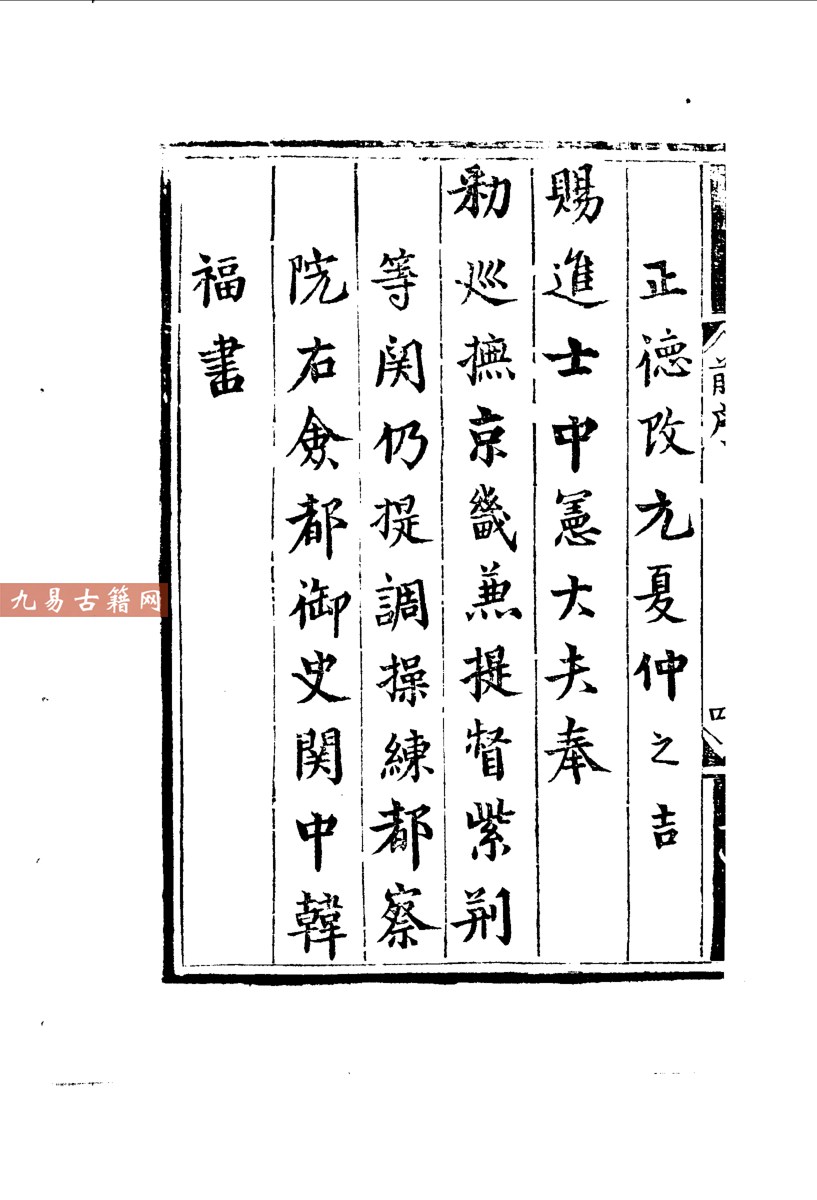 正德改元夏仲之吉
賜進士中憲大夫奉
勑巡撫京畿兼提督紫荆
等関仍提調操練都察
院右僉都御史関中韓
福書
前序
四
九易古籍网